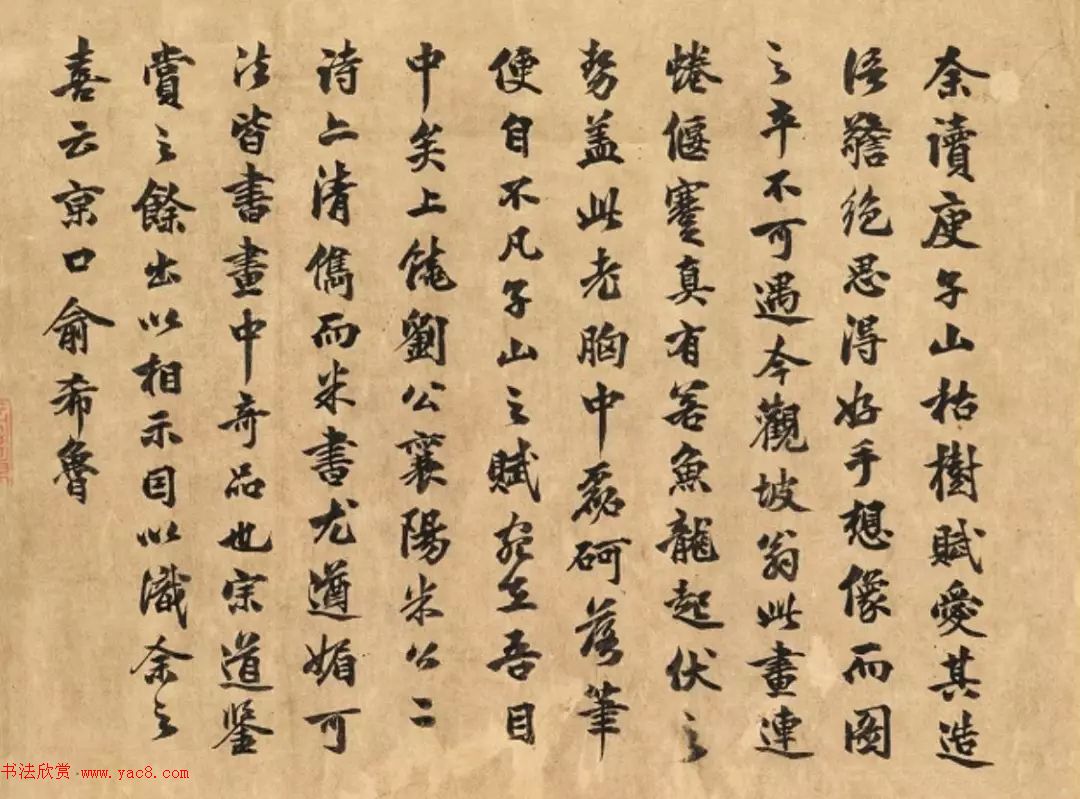 余讀庾子山枯樹賦愛其造
語警絶思得好手想像而圖
之卒不可遇今觀坡翁此畫連
蜷偃蹇真有若魚龍起伏之
勢盖此老胸中磊砢落筆
便自不凡子山之賦宛在吾目
中矣上饒劉公襄陽米公二
詩清儁而米書尤遒媚可
法皆書畫中奇品也宗道鑒
賞之餘出以相示因以識余之
喜云京口俞希魯
书法欣赏 www.yac8.com